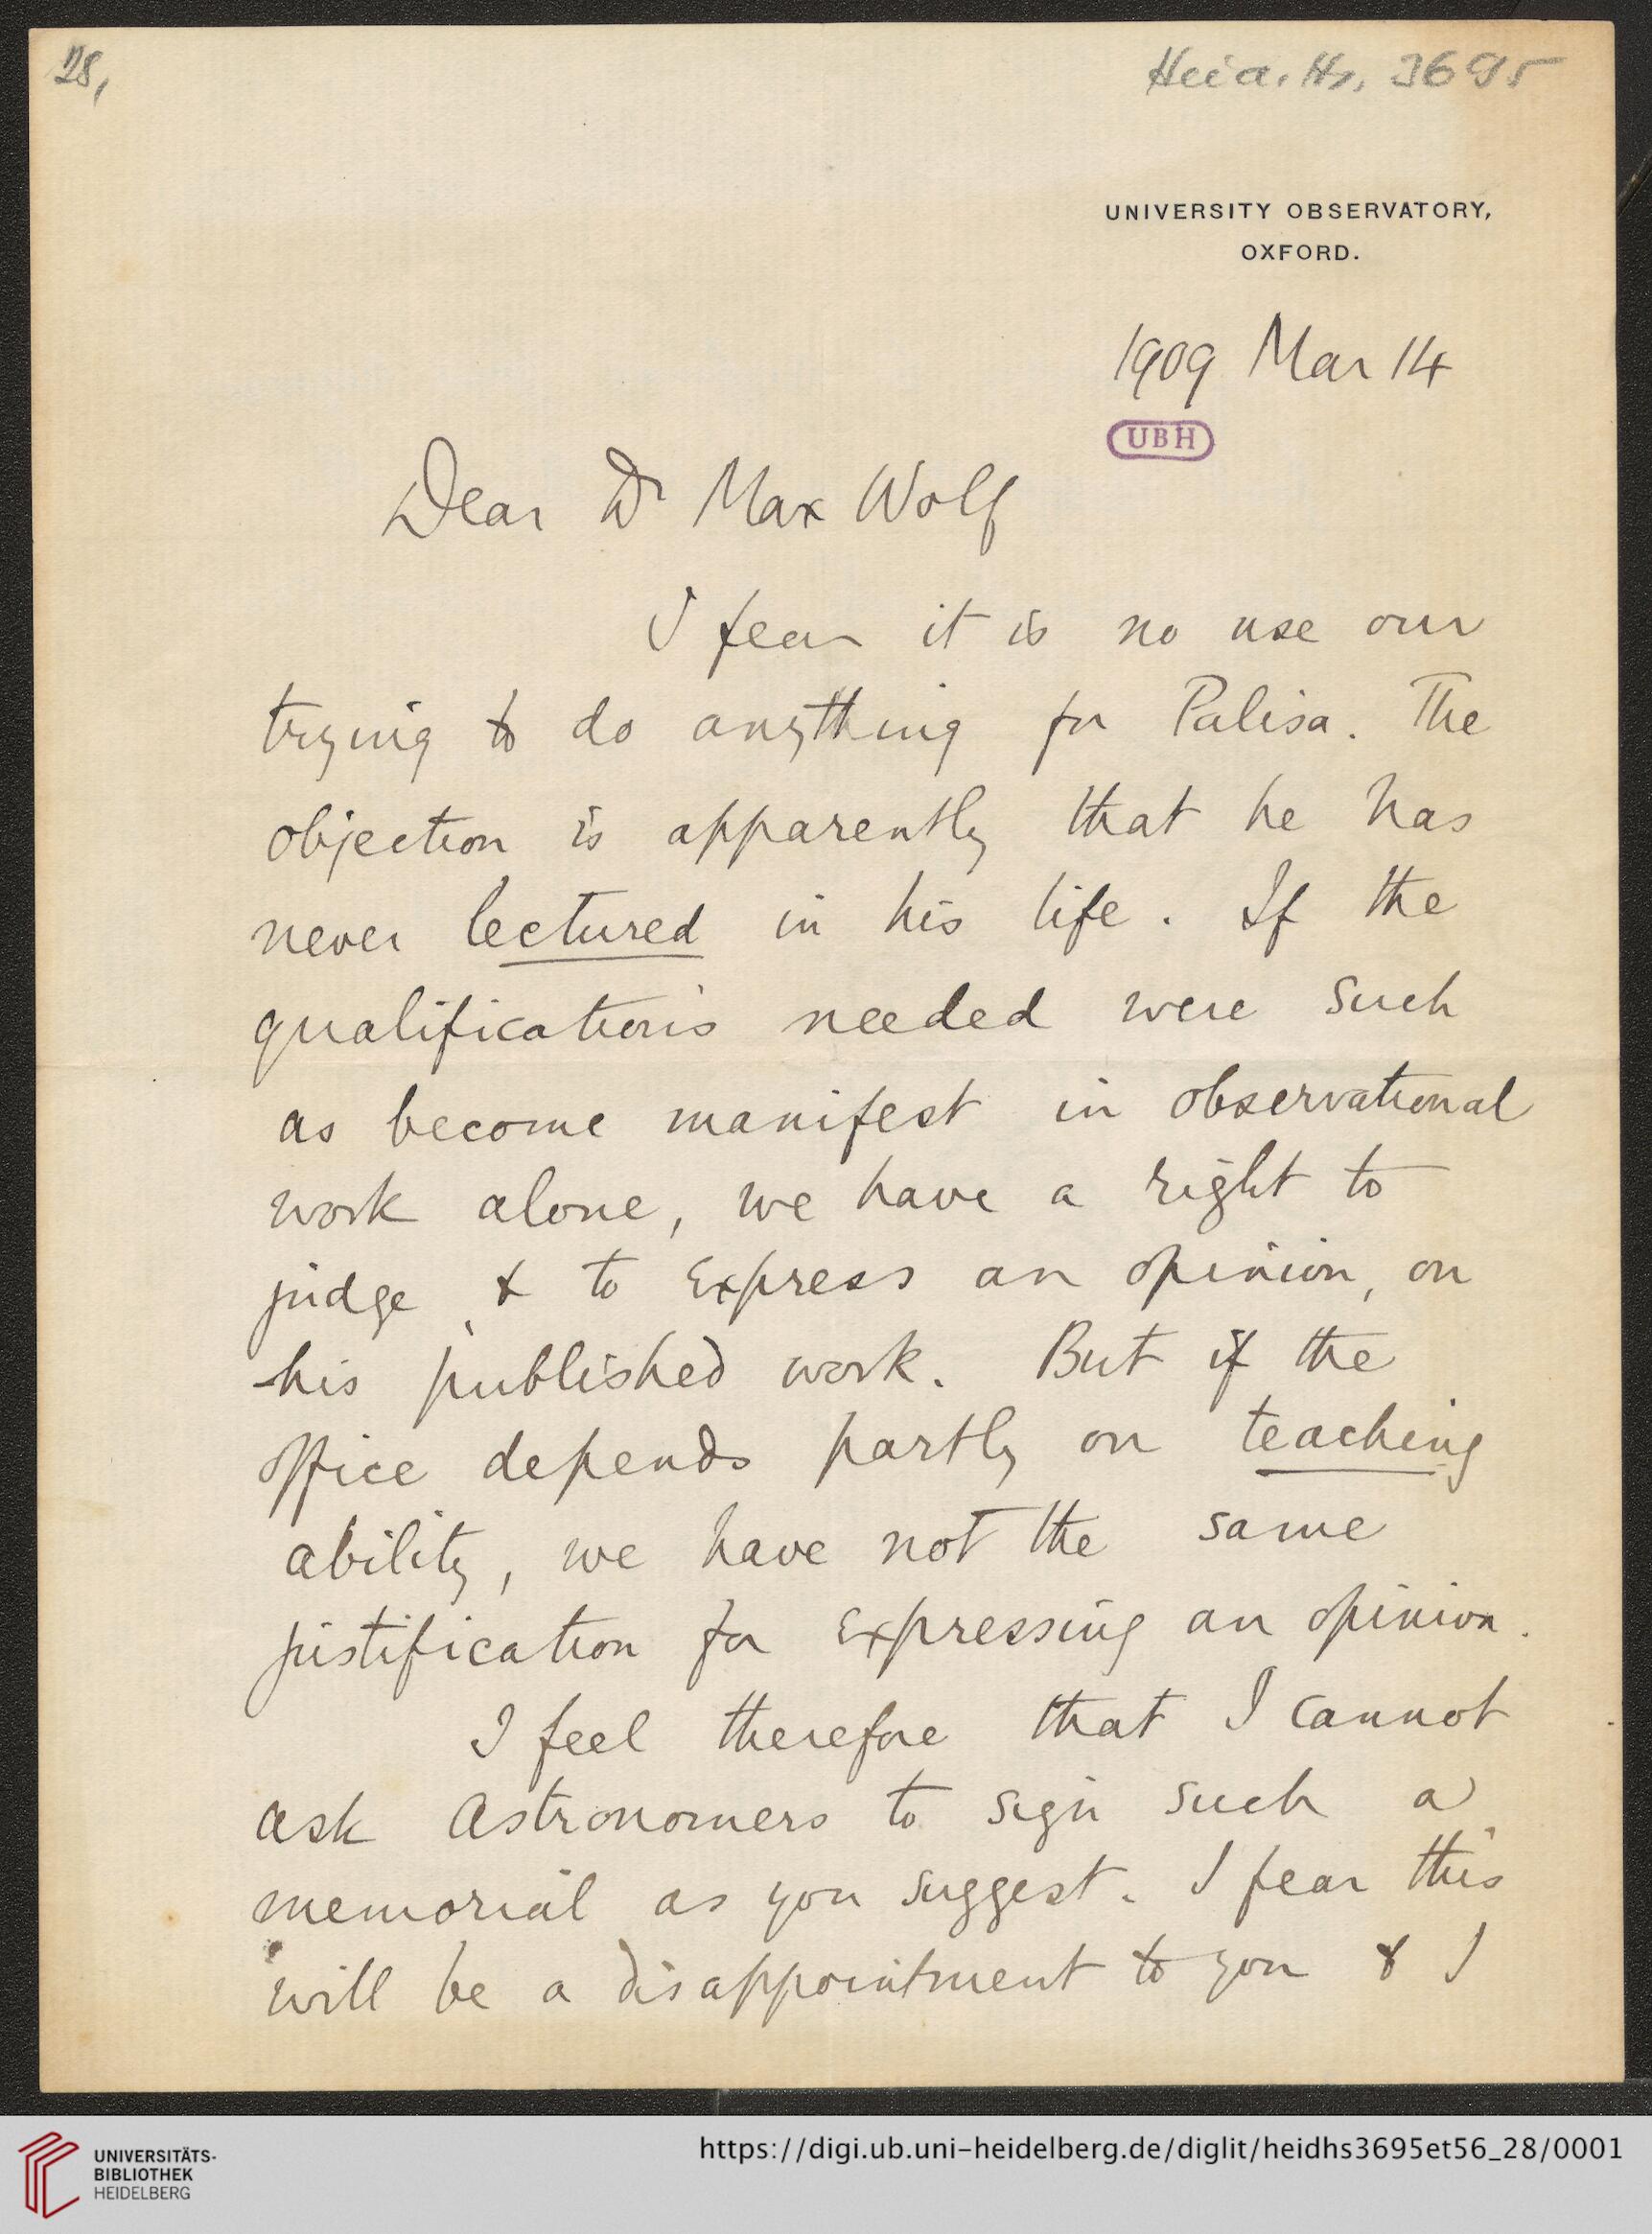 28,
Heid. Hs. 3695
UNIVERSITY OBSERVATORY,
OXFORD.
1909 Mar 14
UBH
Dear Dr Max Wolf
I fear it is no use our
trying to do anything for Palisa. The
objection is apparently that he has
never lectured in his life. If the
qualifications needed were such
as become manifest in observational
work alone, we have a right to
judge, & to express an opinion, on
his published work. But if the
office depends partly on teaching
ability, we have not the same
justification for expressing an opinion.
I feel therefore that I cannot
ask astronomers to sign such a
memorial as you suggest. I fear this
will be a disappointment to you & I
UNIVERSITÄTS-
BIBLIOTHEK
HEIDELBERG
https://digi.ub.uni-heidelberg.de/diglit/heidhs3695et56_28/0001